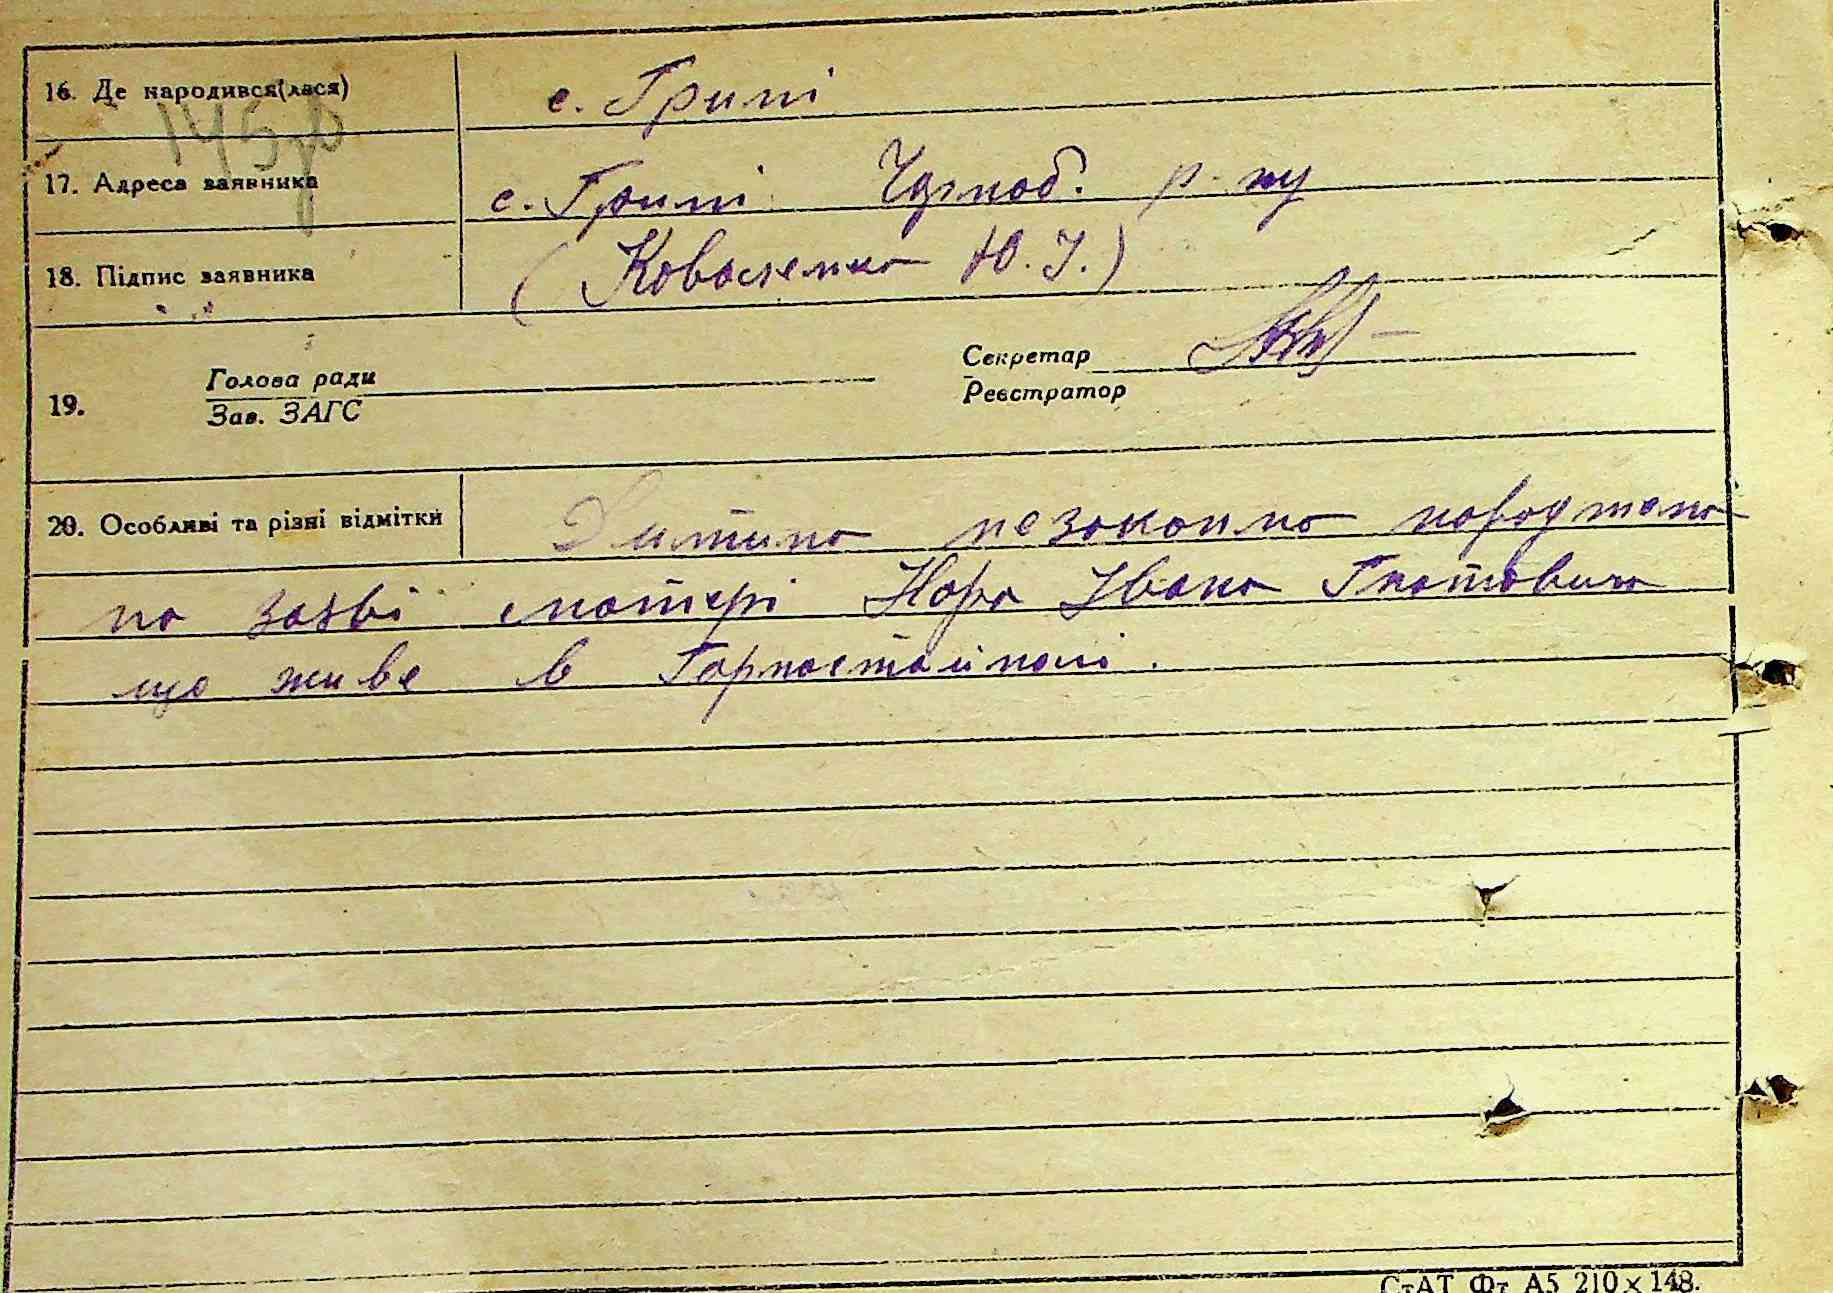 16. Де народився(лася) с. Грині
145 зв
17. Адреса заявника с. Грині Чорноб. р-ну
18. Підпис заявника (Коваленко Ю. І.)
Голова ради Секретар
19. Зав. ЗАГС Реєстратор
20. Особливі та різні відмітки Дитина незаконно народжена
по заяві матері Нора Івана Гнатовича
що живе в Горностайполі.
СтАТ Фт А5 210×148.